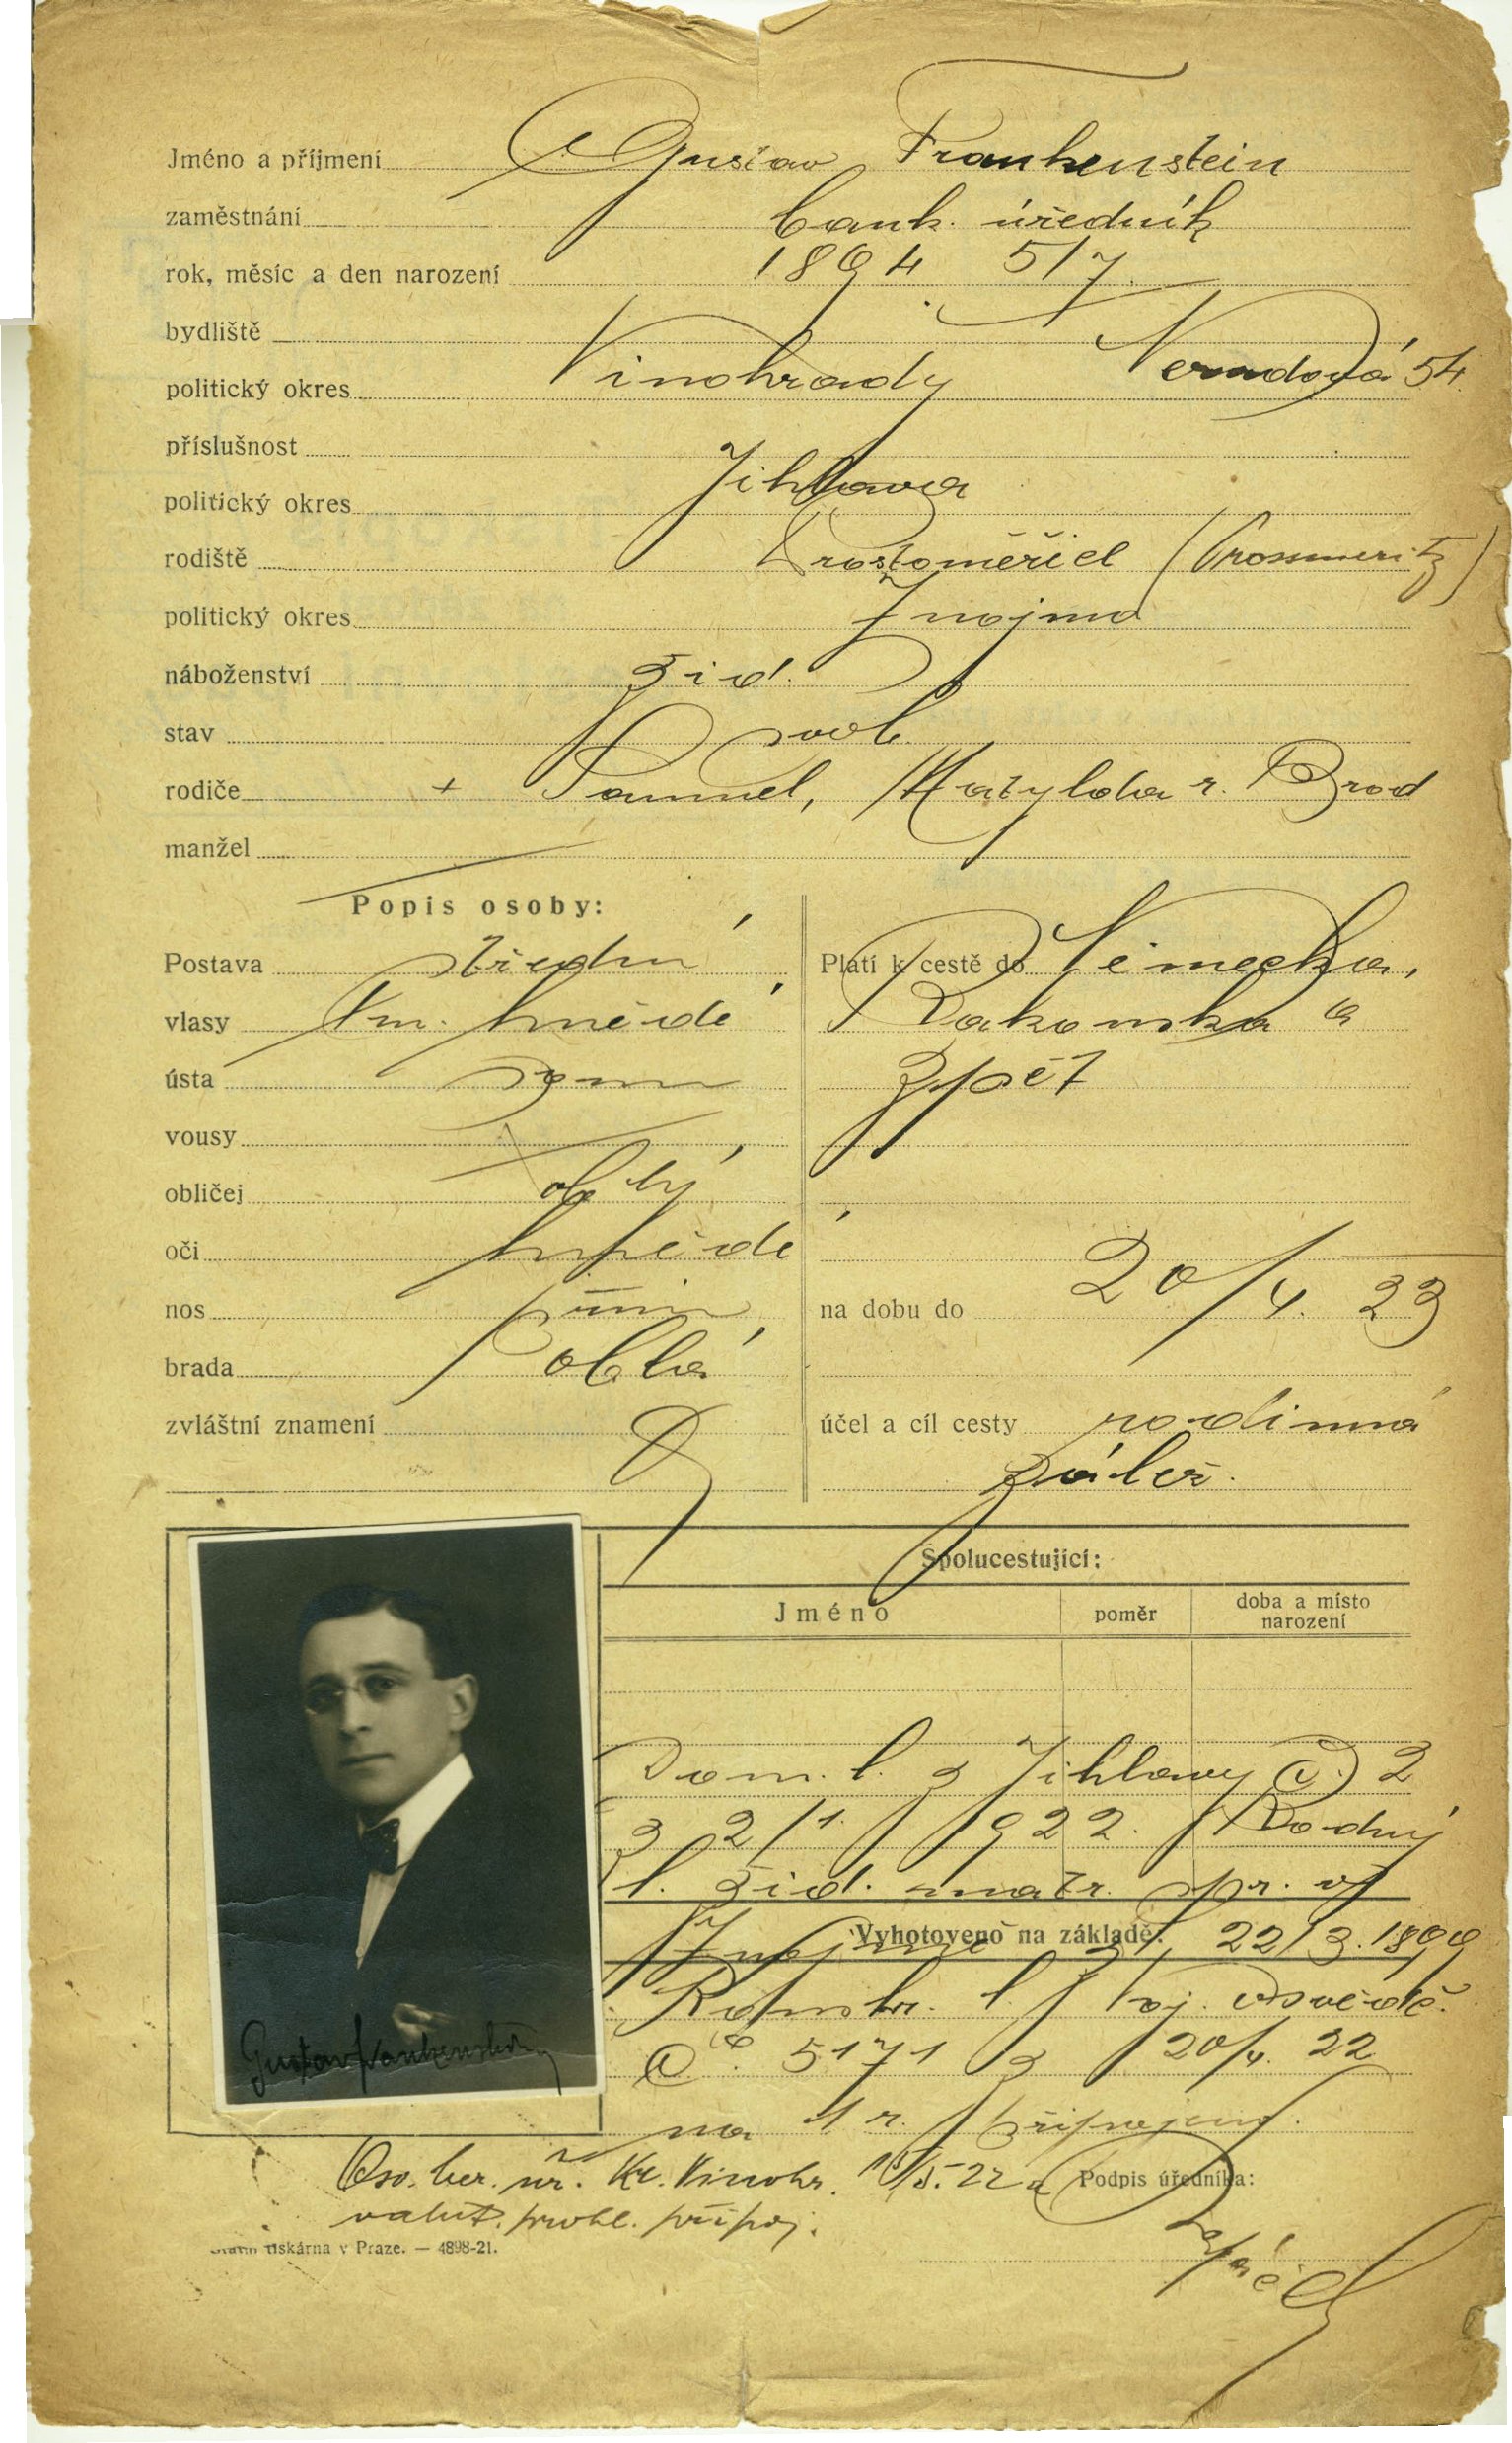 Jméno a příjmení Gustav Frankenstein
zaměstnání bank. úředník
rok, měsíc a den narození 1894 5/7.
bydliště
politický okres Vinohrady Nerudova 54.
příslušnost
politický okres Jihlava
rodiště (Prossmeritz)
politický okres Znojmo
náboženství žid.
stav svob.
rodiče + Samuel, Matylda r. Brod
manžel
Popis osoby:
Postava střední
vlasy tm. hnědé
ústa
vousy
obličej oblý
oči hnědé
nos přímý
brada oblá
zvláštní znamení
Platí k cestě do Německa,
Rakouska a
zpět
na dobu do 20/4. 23
účel a cíl cesty rodinná
zálež.
Spolucestující:
Jméno poměr doba a místo narození
Dom. l. z Jihlavy 2
z 2/1. 1922. Rodný
l. žid. matr. spr. v
Vyhotoveno na základě:
Znojmě z 22/3. 1899
l. voj. osvědč.
5171 z 20/4. 22
na 1 r. připojeny.
Gustav Frankenstein
Osv. ber. úř. Kr. Vinohr. 22
valut. prohl. připoj.
Podpis úředníka:
tiskárna v Praze. — 4898-21.